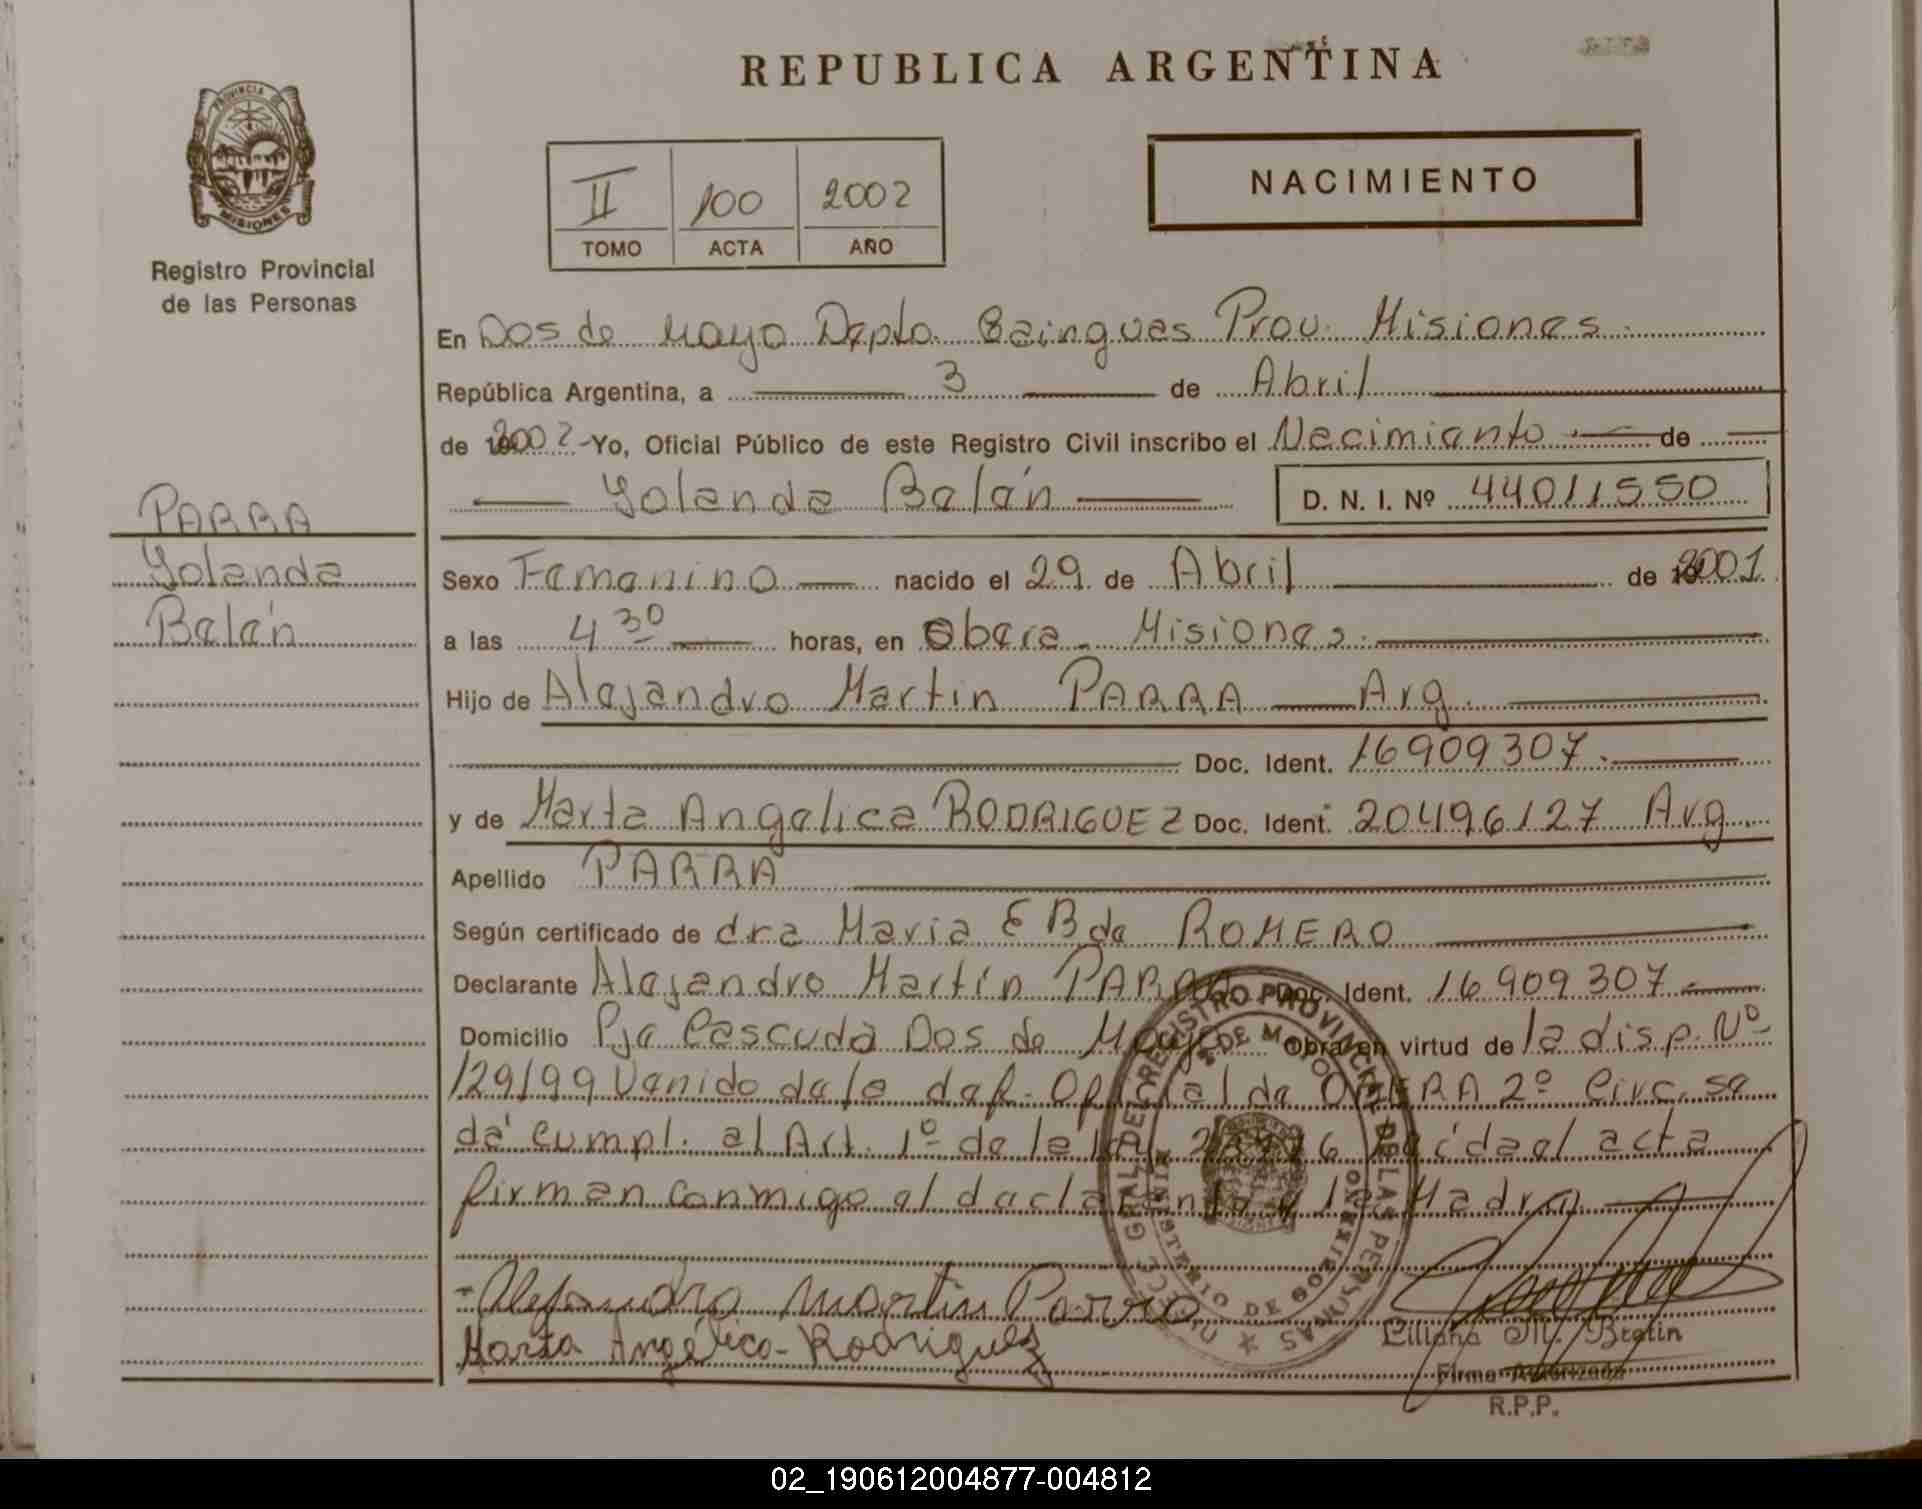 REPUBLICA ARGENTINA
PROVINCIA DE
MISIONES
Registro Provincial
de las Personas
II 100 2002
TOMO ACTA AÑO
NACIMIENTO
En Dos de Mayo Depto. Caingues Prov. Misiones
República Argentina, a 3 de Abril
de 2002 Yo, Oficial Público de este Registro Civil inscribo el Nacimiento de
Yolanda Belén D. N. I. Nº 44011550
PARRA
Yolanda
Belén
Sexo Femenino nacido el 29 de Abril de 2001
a las 4 30 horas, en Obera - Misiones.
Hijo de Alejandro Martin PARRA Arg.
Doc. Ident. 16909307.
y de Marta Angelica RODRIGUEZ Doc. Ident. 20496127 Arg
Apellido PARRA
Según certificado de dra Maria E B de ROMERO
Declarante Alejandro Martín PARRA Doc. Ident. 16909307
Domicilio Pje Cascuda Dos de Mayo Obra en virtud de la disp. Nº
129/99 Venido de la def. Oficial de OBERA 2º Circ. se
dá cumpl. al Art. 1º de la ley acta
firman conmigo el declarante y la Madre
Alejandro Martin Parra
Marta Angélica Rodriguez
DIRECC. GRAL. DEL REGISTRO PROVINCIAL DE LAS PERSONAS
MINISTERIO DE GOBIERNO
2 DE MAYO
Liliana M. Bratin
Firma Autorizada
R.P.P.
02_190612004877-004812